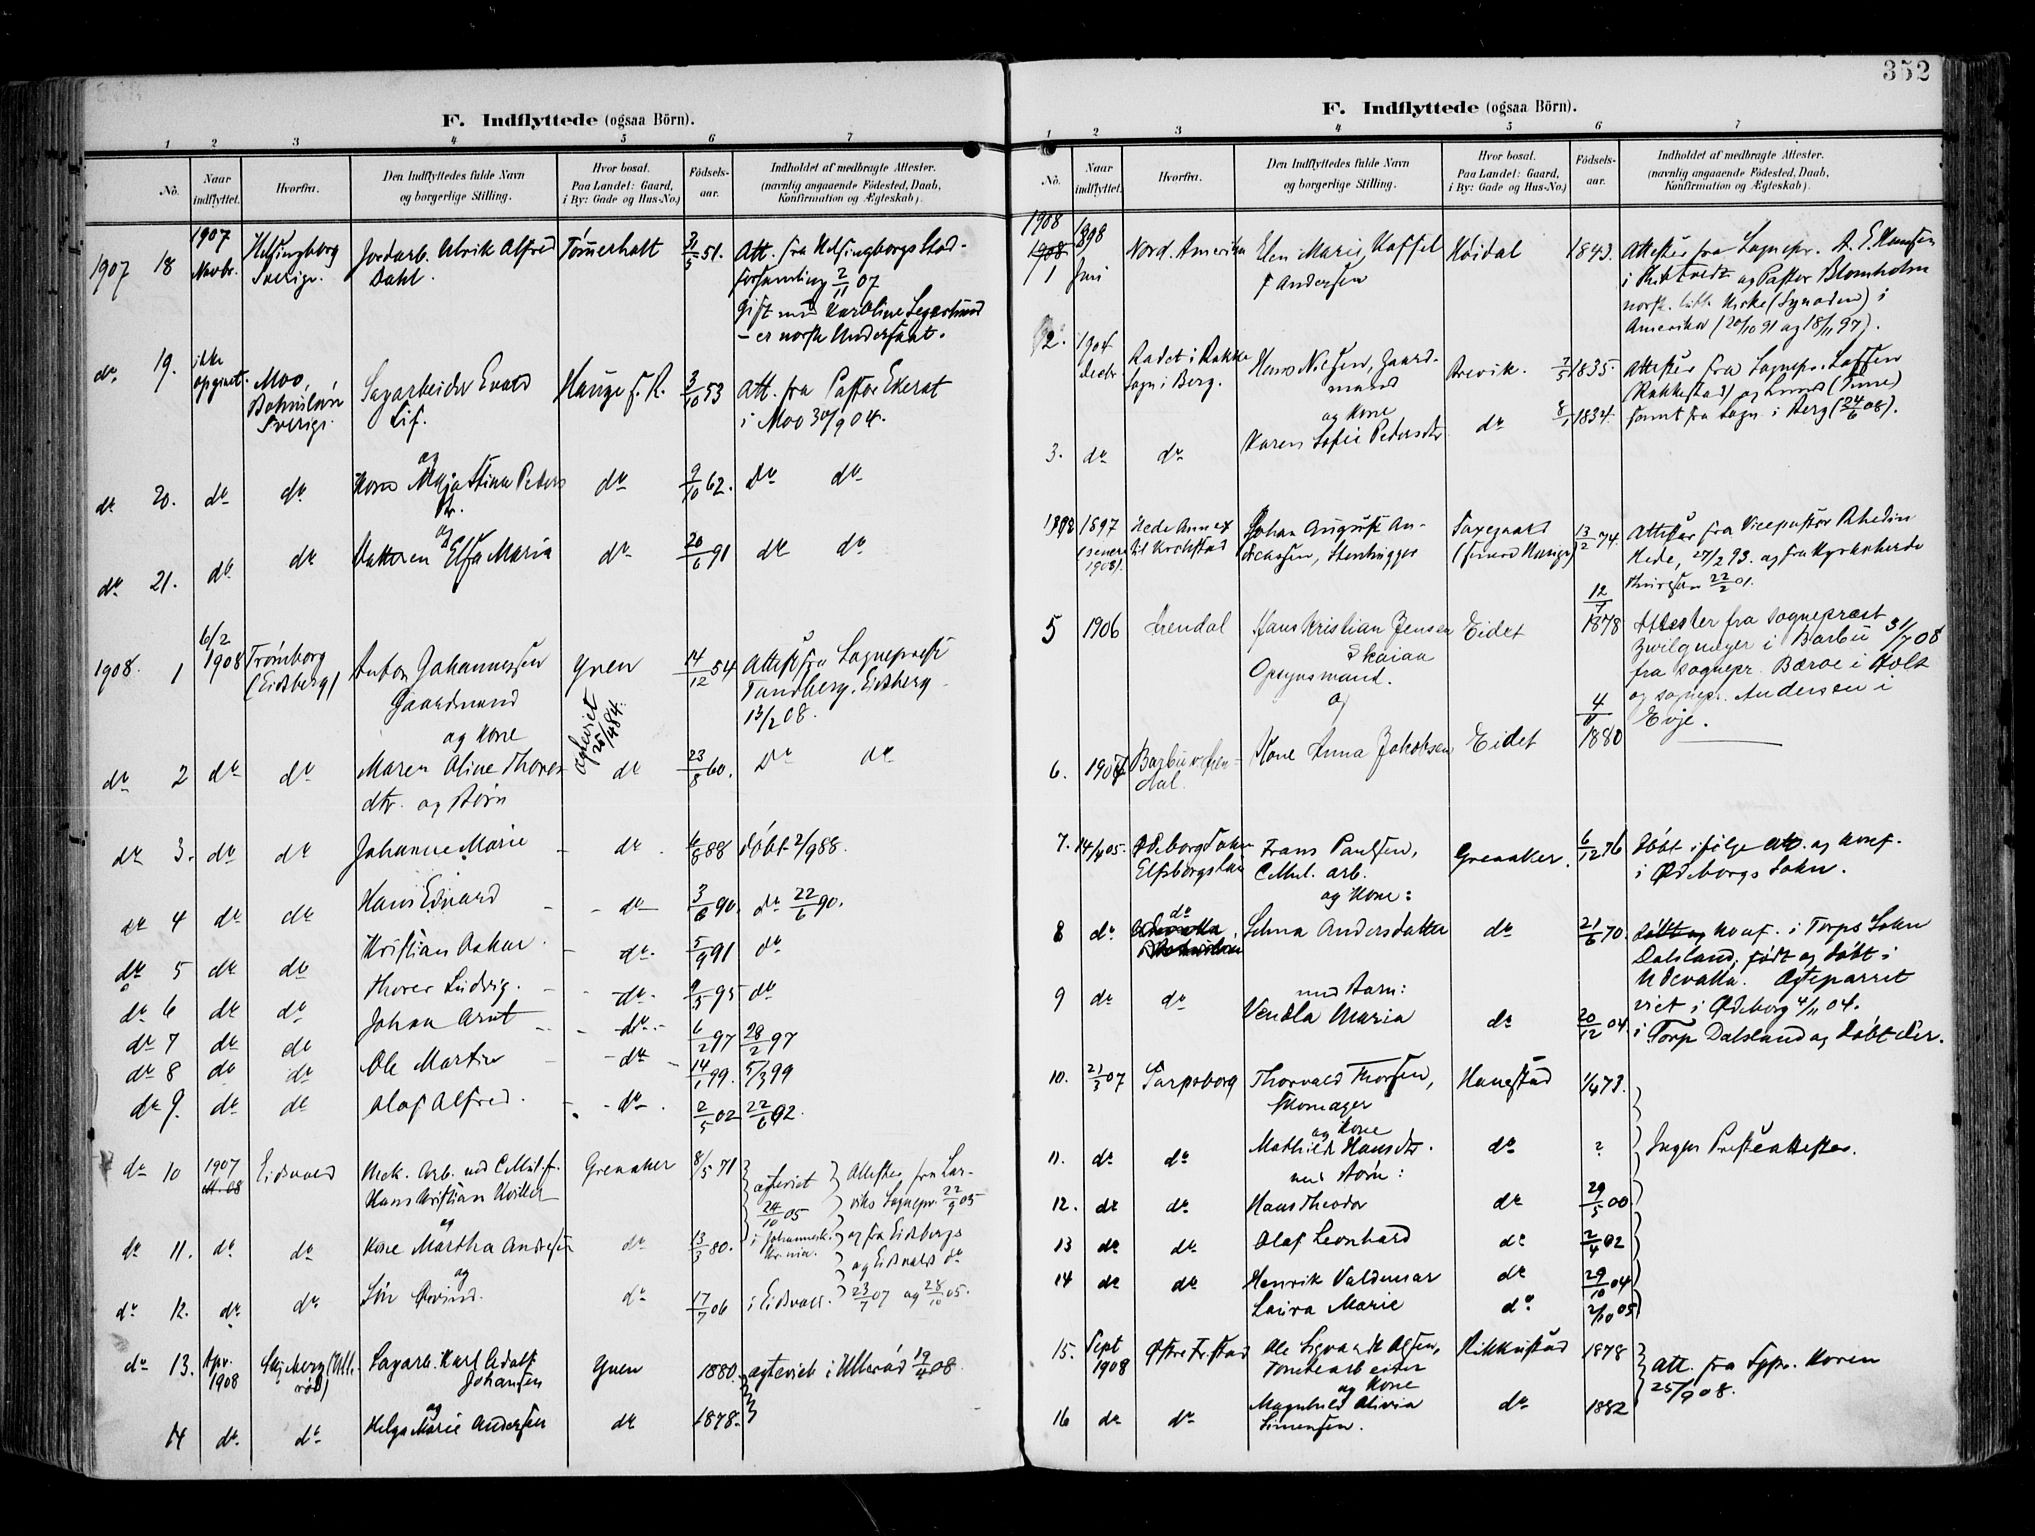 352
F. Indflyttede (ogsaa Börn).
1 2 3 4 5 6 7
No. Naar indflyttet. Hvorfra. Den Indflyttedes fulde Navn og borgerlige Stilling. Hvor bosat. Paa Landet: Gaard, i By: Gade og Hus-No.) Födsels-aar. Indholdet af medbragte Attester. (navnlig angaaende Födested, Daab, Konfirmation og Ægteskab).
1907 18 1907 Novbr. Helsingborg Sverige. Jordarb. Ulrik Alfred Dahl. Tömerholt 31/5 51. Att. fra Helsingborgs Stad-
forsamling 2/11 07
Gift med Karoline
- er norsk Undersaat.
do 19. ikke opgivet. Moo, Bohuslän Sverige. Sagarbeider Evald Lif. Hauge 3/10 53 Att. fra Pastor Ekerot
i Moo 30/9 04.
do 20. do do og Kone Maja Stina Peters dtr. do 9/10 62. do do
do 21. do do og Datteren Elsa Maria do 20/6 91 do do
1908. 1 6/2 1908 Trömborg (Eidsberg) Anton Johannessen Gaardmand og Kone Yven 14/12 54 Attest fra Sognepræst
Tandberg, Eidsberg
13/2 08.
ægteviet 25/4 84.
do 2 do do Maren Oline Thores-
dtr. og Börn do 23/8 60. do do
do 3. do do Johanne Marie do 4/8 88 döbt 2/9 88.
do 4 do do Hans Edvard do 3/6 90. do 22/6 90.
do 5 do do Kristian Oskar do 5/9 91 do
do 6 do do Thorer Ludvig. do 9/5 95 do
do 7 do do Johan Arnt do 6/2 97 28/2 97
do 8 do do Ole Martin do 14/1 99. 5/3 99
do 9. do do Olaf Alfred. do 2/5 02 22/6 02.
do 10 1907 Eidsvold Mek. Arb. ved Cellul.f. Hans Kristian Kvitter Greaaker 8/5 71 ægteviet 24/10 05 i Johannesk. Kr.nia. Attester fra Lar-
viks Sognepr. 22/9 05
og fra Eidsbergs
og Eidsvolds do
do 11. do do og Kone Martha Andresen do 13/3 80.
do 12. do do og Sön Öivind. do 17/7 06 i Eidsvold. 23/7 07 og 28/10 05.
do 13. Apr. 1908 Skjeberg (Ulle-
röd) Sagarb. Karl Adolf Johansen Yven 1880. ægteviet i Ulleröd 19/4 08.
14 do do og Helga Marie Andersen do 1878.
F. Indflyttede (ogsaa Börn).
1 2 3 4 5 6 7
No. Naar indflyttet. Hvorfra. Den Indflyttedes fulde Navn og borgerlige Stilling. Hvor bosat. Paa Landet: Gaard, i By: Gade og Hus-No.) Födsels-aar. Indholdet af medbragte Attester. (navnlig angaaende Födested, Daab, Konfirmation og Ægteskab).
1908
1908 1 1898 Juni Nord. Amerika Elen Marie Koffel f Andersen Höidal 1843. Attester fra Sognepr. A. E. Hansen
i og Pastor Blomholm
norsk luth. Kirke (Synoden) i
Amerika (20/10 91 og 18/11 97).
2. 1904 Decbr Rodet i Rakke-
sogn i Berg. Hans Nielsen, Gaard-
mand og Kone Brevik. 7/5 1835. Attester fra Sognepr. Lassen
(Rakkestad) og Lund (Time)
samt fra Sogn. i Berg (24/6 08).
3. do do Karen Sofie Pedersdtr do 8/1 1834.
1897 (senere 1908). Hede Annex til Johan August An-
dreassen, Stenhugger Torgaard 13/2 74. Attester fra Vicepastor Rhedin
Hede, 27/2 93. og fra Kyrkoherde
22/2 01.
5 1906 Arendal Hans Kristian Jensen Skaiaa Opsynsmand. og Eidet 12/7 1878 Attester fra Sognepræst
Zwilgmeyer i Barbu 31/7 08
fra Sognepr. Bærøe i Holt
og sognepr. Andersen i
Evje.
6. 1907 Barbu v. Aren-
dal. Kone Anna Jakobsen Eidet 4/ 1880
7. 14/4 05. Ödeborg Sokn Elfsborgs län Frans Paulsen, Cellul. arb. og Kone: Greaaker. 6/12 76 Döbt ifölge att. og konf.
i Ödeborgs Sokn.
8 do do Selma Andersdatter do 21/6 70. döbt og konf. i Torps Sokn
Dalsland; födt og döbt i
Udevalla. Ægteparret
viet i Ödeborg 4/11 04.
9 do do med Barn: Vendla Maria do 20/12 04. i Torp Dalsland og döbt der.
10. 21/3 07 Sarpsborg Thorvald Thorsen, Skomager og Kone Hanestad 1/4 73.
11. do do Mathilde Hansdtr. med Börn: do ? Ingen Presteattester.
12. do do Hans Theodor do 29/5 00.
13 do do Olaf Leonhard do 2/4 02
14 do do Henrik Valdemar do 29/10 04
Laura Marie do 2/10 05
15. Sept 1908 Östre Fr.stad Ole Sigvardt Olsen, Tomtearbeider og Kone Rikkustad 1878 Att. fra Sgpr. Koren
25/9 08.
16 do do Magnhild Olivia Simensen. do 1882